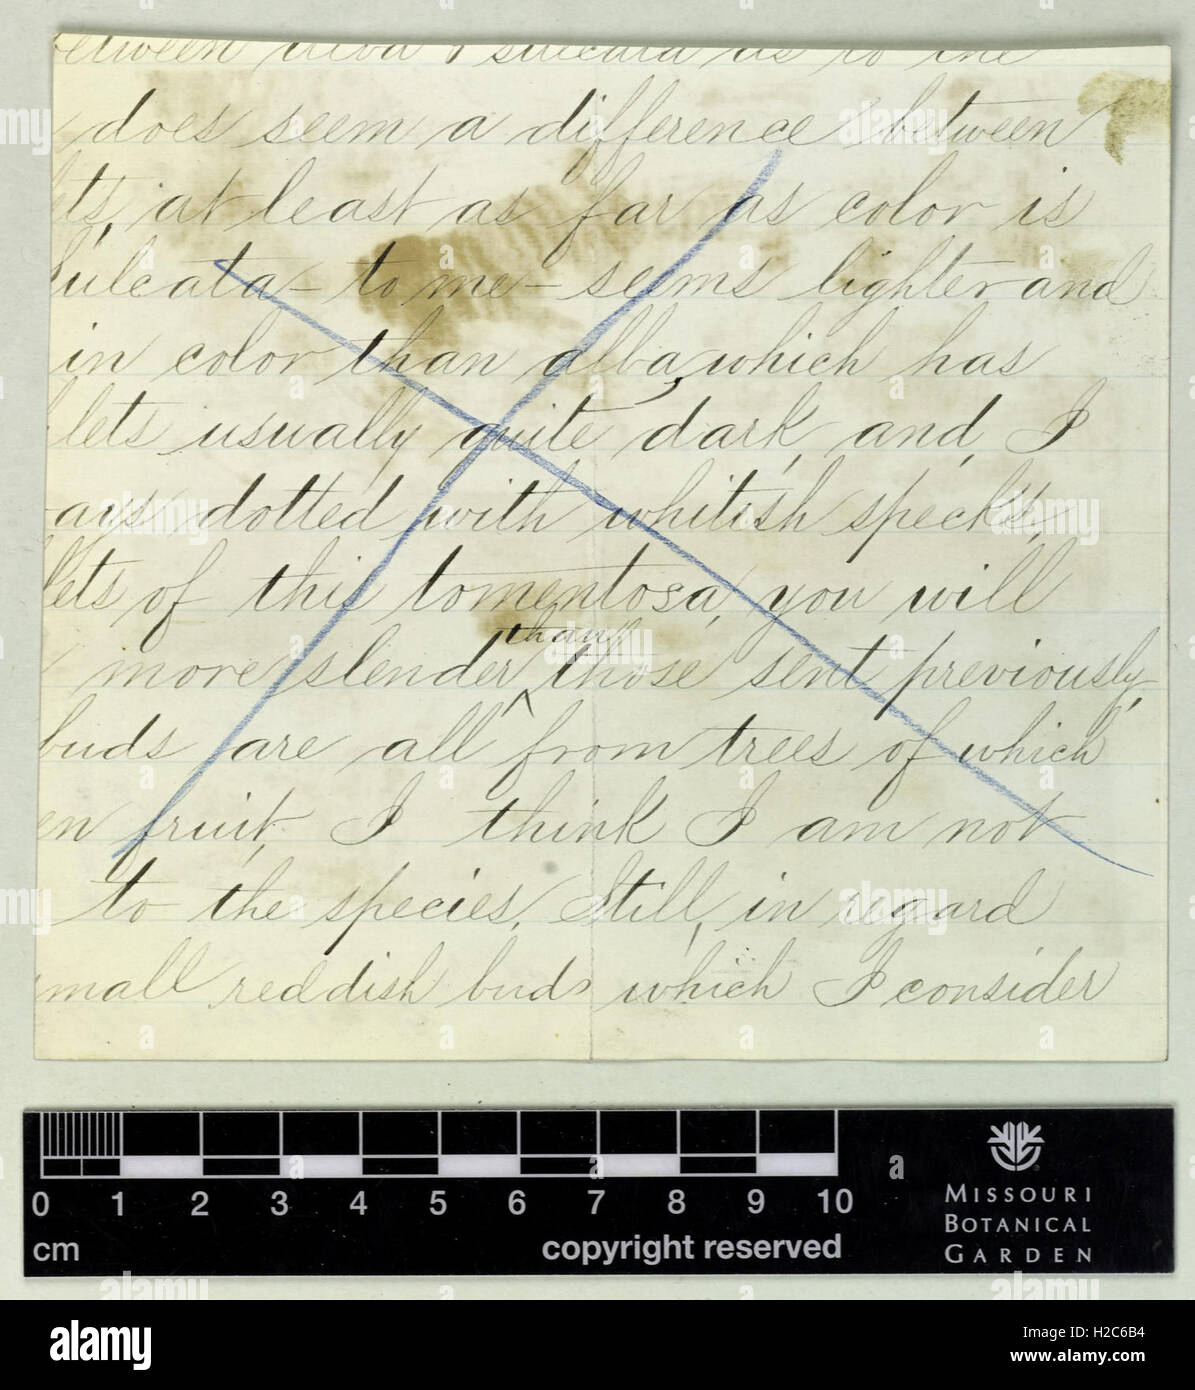 between alba & sulcata as to the
does seem a difference between
lets, at least as far as color is
sulcata – to me – seems lighter and
in color than alba, which has
lets usually quite dark, and, I
ays dotted with whitish specks,
lets of this tomentosa, you will
than
more slender ^ those sent previously,
buds are all from trees of which
en fruit, I think I am not
to the species. Still, in regard
small reddish buds which I consider
0 1 2 3 4 5 6 7 8 9 10
cm
copyright reserved
MISSOURI
BOTANICAL
GARDEN
alamy
Image ID: H2C6B4
www.alamy.com